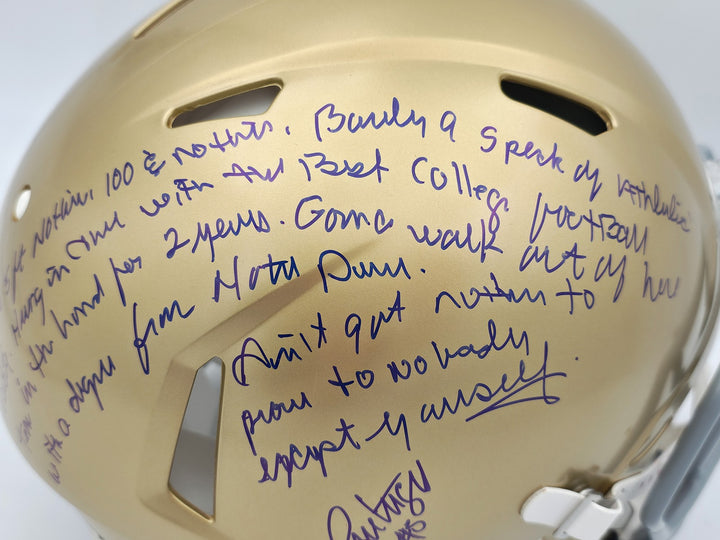 5 ft Nothin, 100 & Nothin. Barely a speck of Athletic
Hung in there with the Best College football
in the land for 2 years. Gonna walk out of here
with a degree from Notre Dame.
Ain't got nothin to
prove to Nobody
except yourself.